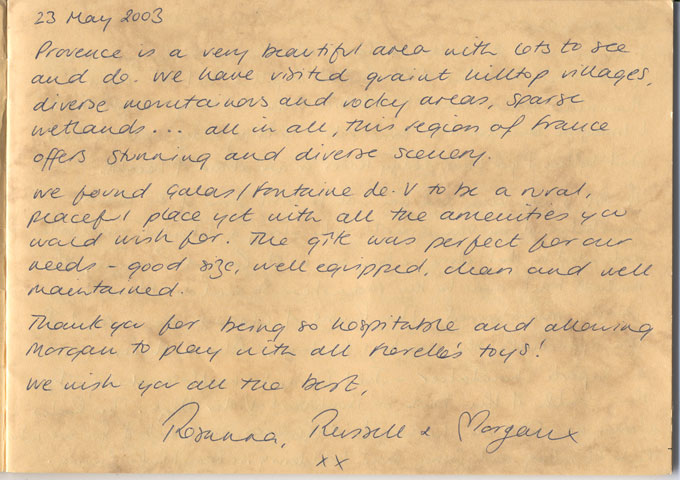 23 May 2003
Provence is a very beautiful area with lots to see
and do. We have visited quaint hilltop villages,
diverse mountainous and rocky areas, sparse
wetlands... all in all, this region of France
offers stunning and diverse scenery.
We found Galas/Fontaine de V to be a rural,
peaceful place yet with all the amenities you
would wish for. The gîte was perfect for our
needs - good size, well equipped, clean and well
maintained.
Thank you for being so hospitable and allowing
Morgan to play with all toys!
We wish you all the best,
Rosanna, Russell & Morgan x
xx